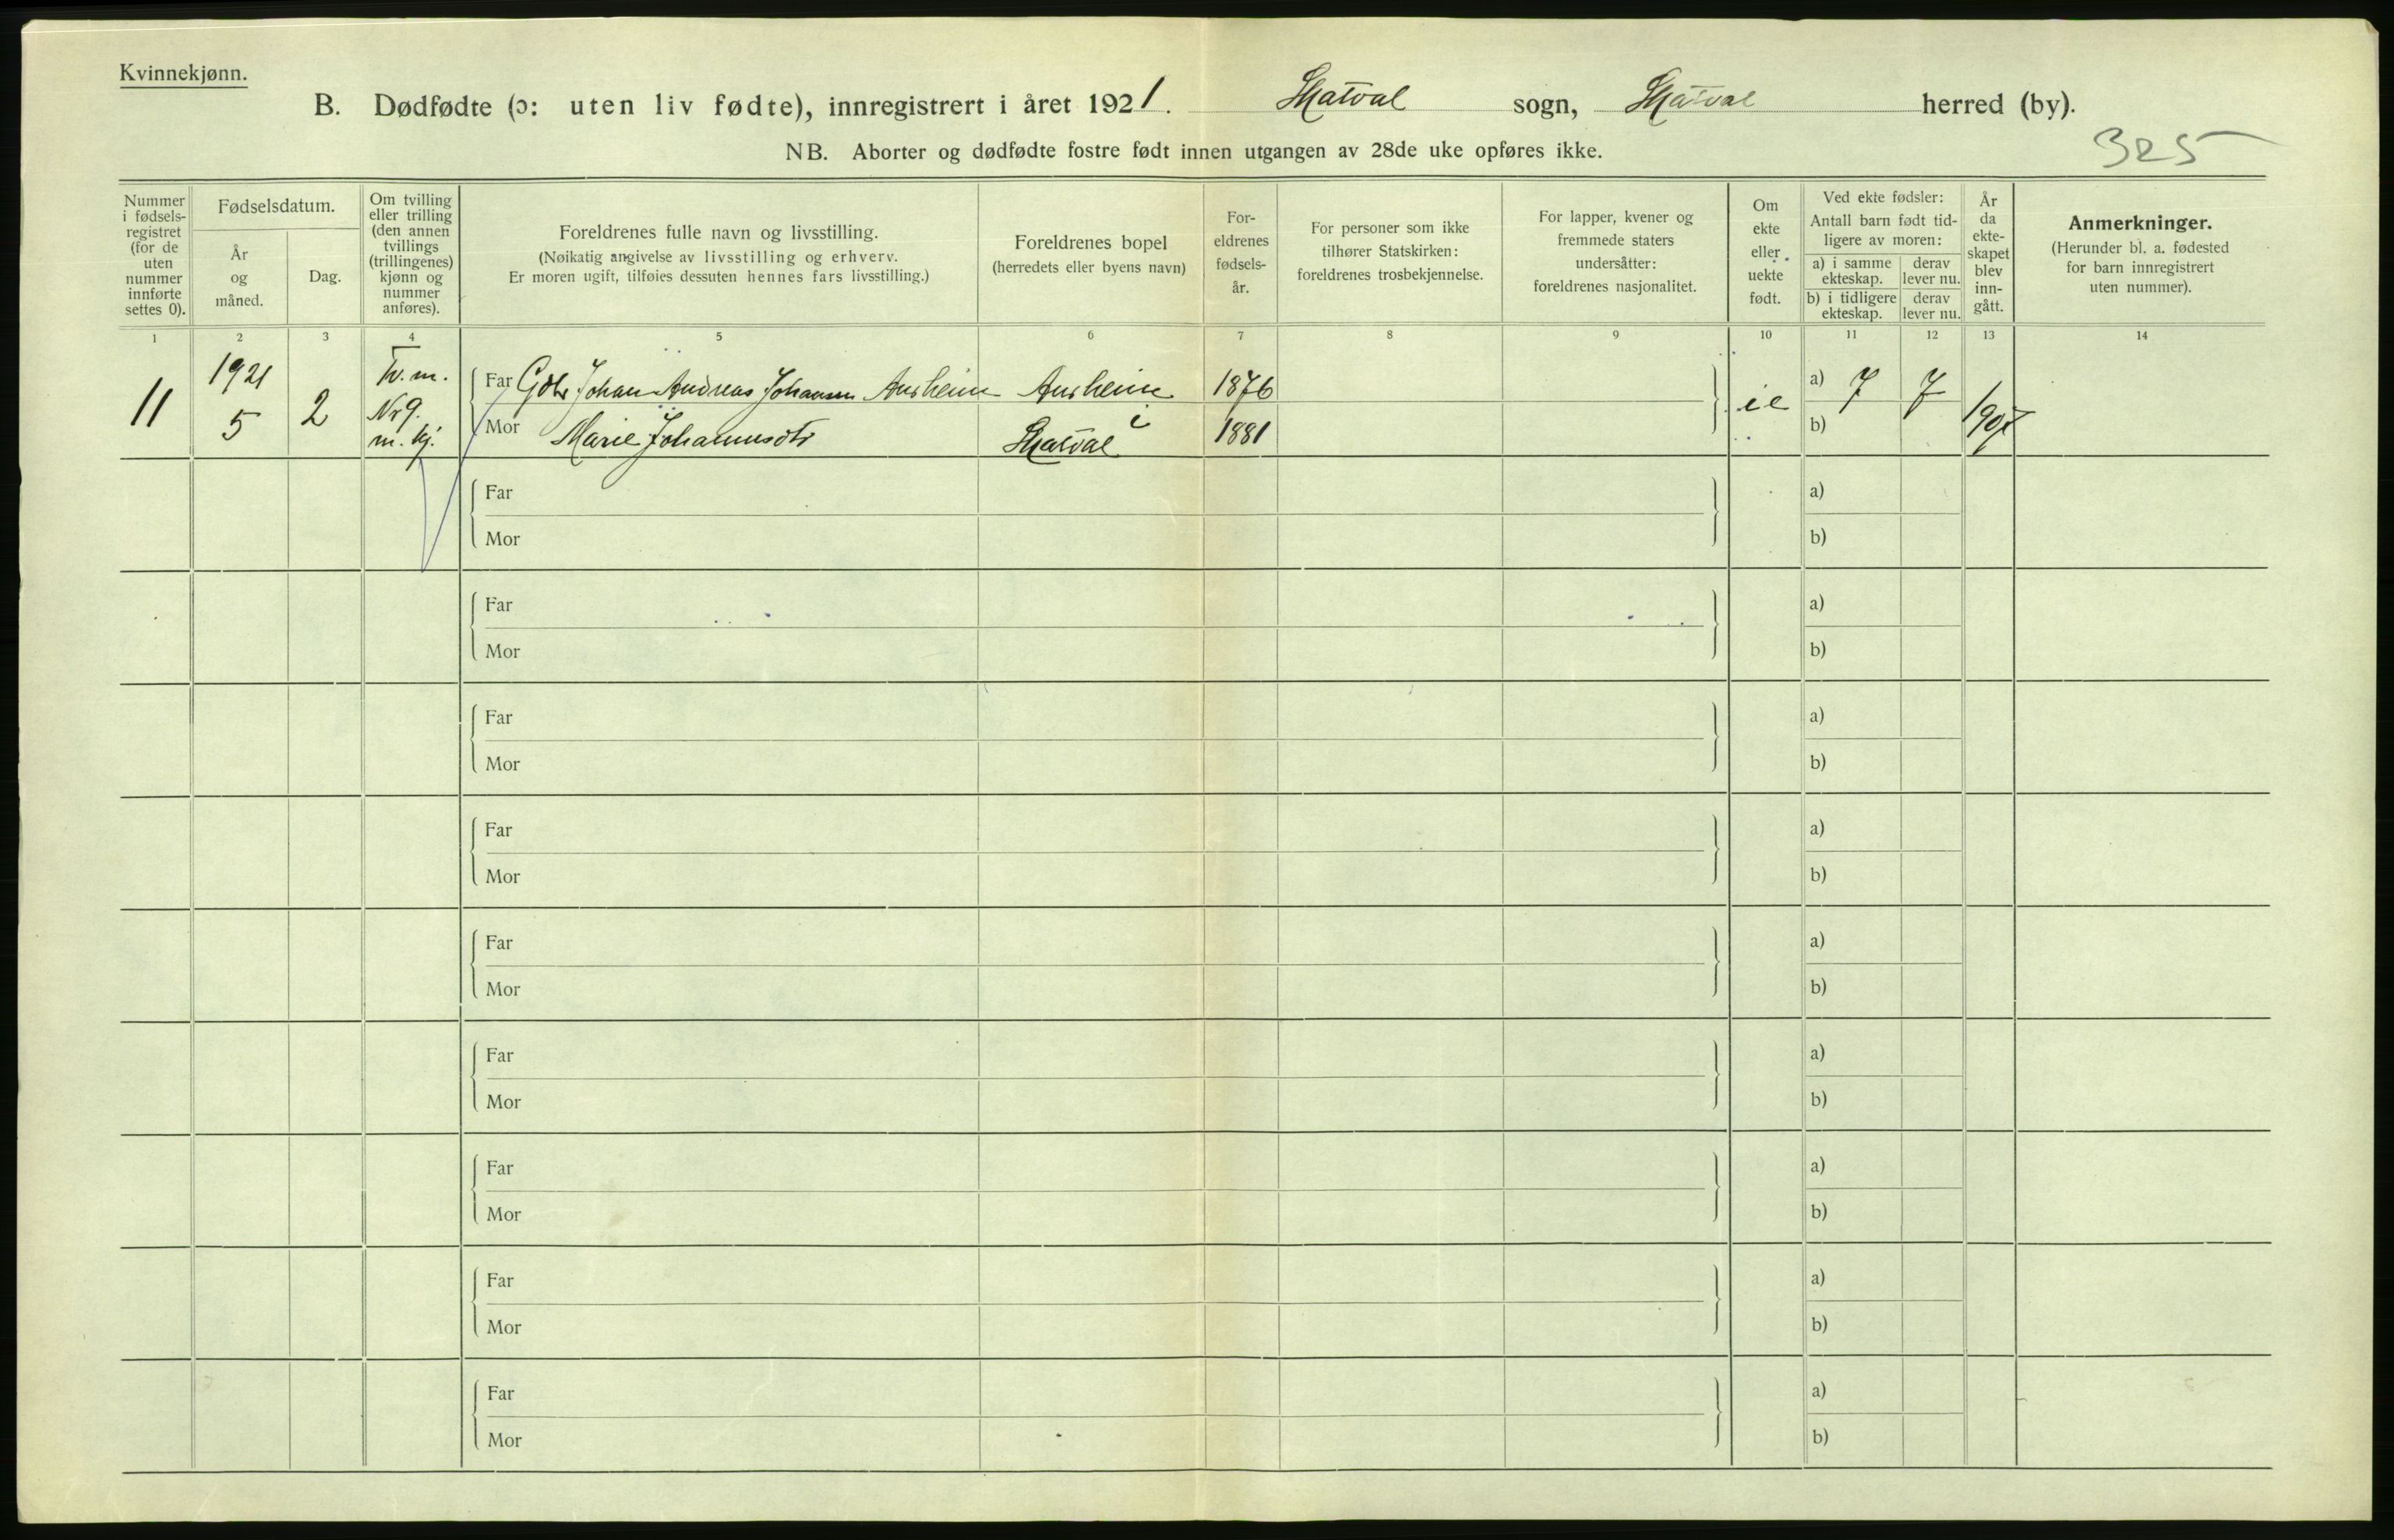 Kvinnekjønn.
B. Dødfødte (ɔ: uten liv fødte), innregistrert i året 1921. Skatval sogn, Skatval herred (by).
NB. Aborter og dødfødte fostre født innen utgangen av 28de uke opføres ikke.
325
Nummer i fødsels-registret (for de uten nummer innførte settes 0).
Fødselsdatum.
År og måned.
Dag.
Om tvilling eller trilling (den annen tvillings (trillingenes) kjønn og nummer anføres).
Foreldrenes fulle navn og livsstilling.
(Nøikatig angivelse av livsstilling og erhverv.
Er moren ugift, tilføies dessuten hennes fars livsstilling.)
Foreldrenes bopel
(herredets eller byens navn)
For-eldrenes fødsels-år.
For personer som ikke tilhører Statskirken: foreldrenes trosbekjennelse.
For lapper, kvener og fremmede staters undersåtter: foreldrenes nasjonalitet.
Om ekte eller uekte født.
Ved ekte fødsler:
Antall barn født tid-ligere av moren:
a) i samme ekteskap.
derav lever nu.
b) i tidligere ekteskap.
derav lever nu.
År da ekte-skapet blev inn-gått.
Anmerkninger.
(Herunder bl. a. fødested for barn innregistrert uten nummer).
1 2 3 4 5 6 7 8 9 10 11 12 13 14
11
1921
5
2
Tv. m.
Nr 9.
m. kj.
Far Gbr Johan Andreas Johansen Ausheim Ausheim 1876
Mor Marie Johannesdtr i Skatval 1881
ie
a) 7 7
b)
1907
Far a)
Mor b)
Far a)
Mor b)
Far a)
Mor b)
Far a)
Mor b)
Far a)
Mor b)
Far a)
Mor b)
Far a)
Mor b)
Far a)
Mor b)
Far a)
Mor b)